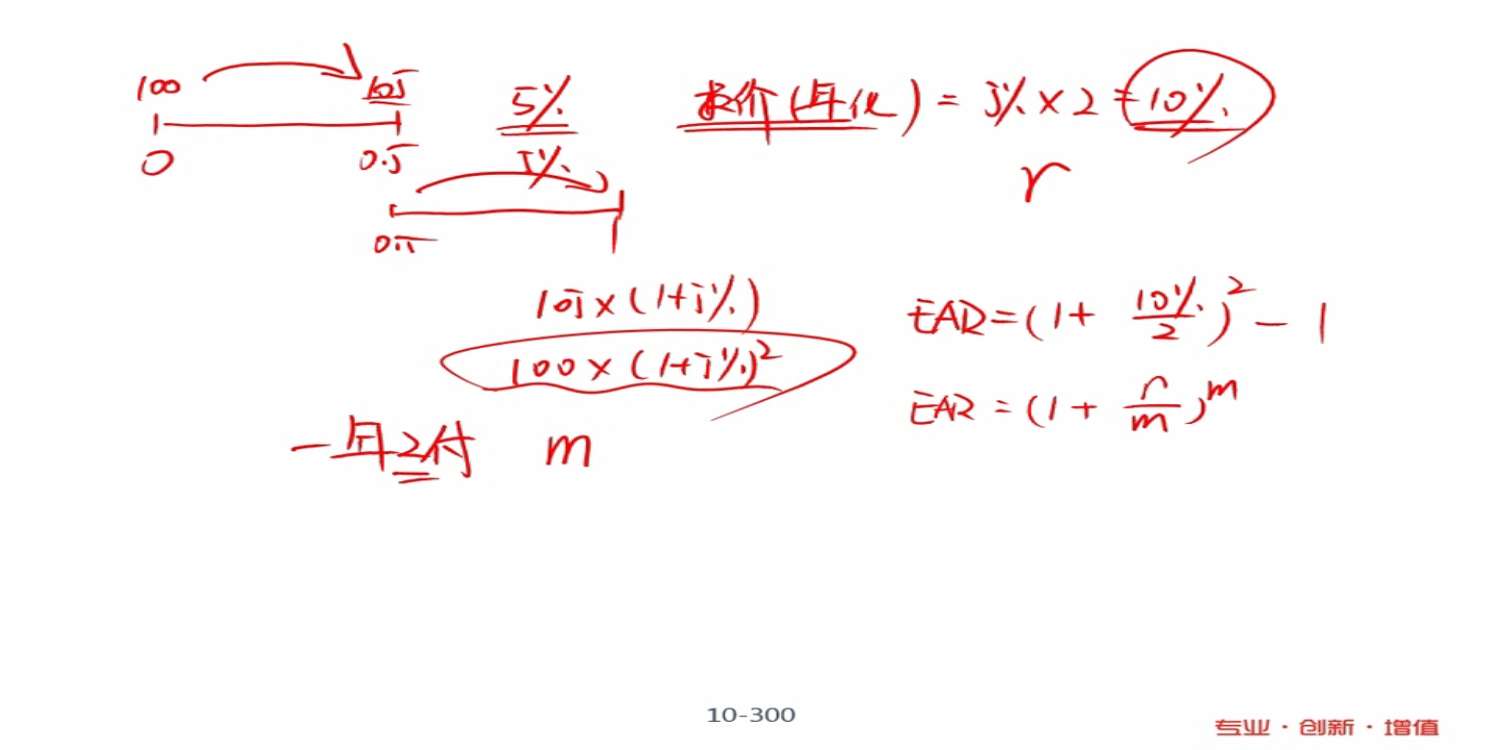 100 105 5% 报价(年化) = 5% × 2 = 10%
0 0.5 5% r
0.5 1
105 × (1+5%)
EAR = (1 + 10%/2)^2 - 1
100 × (1+5%)^2
EAR = (1 + r/m)^m
一年2付 m
10-300
专业·创新·增值